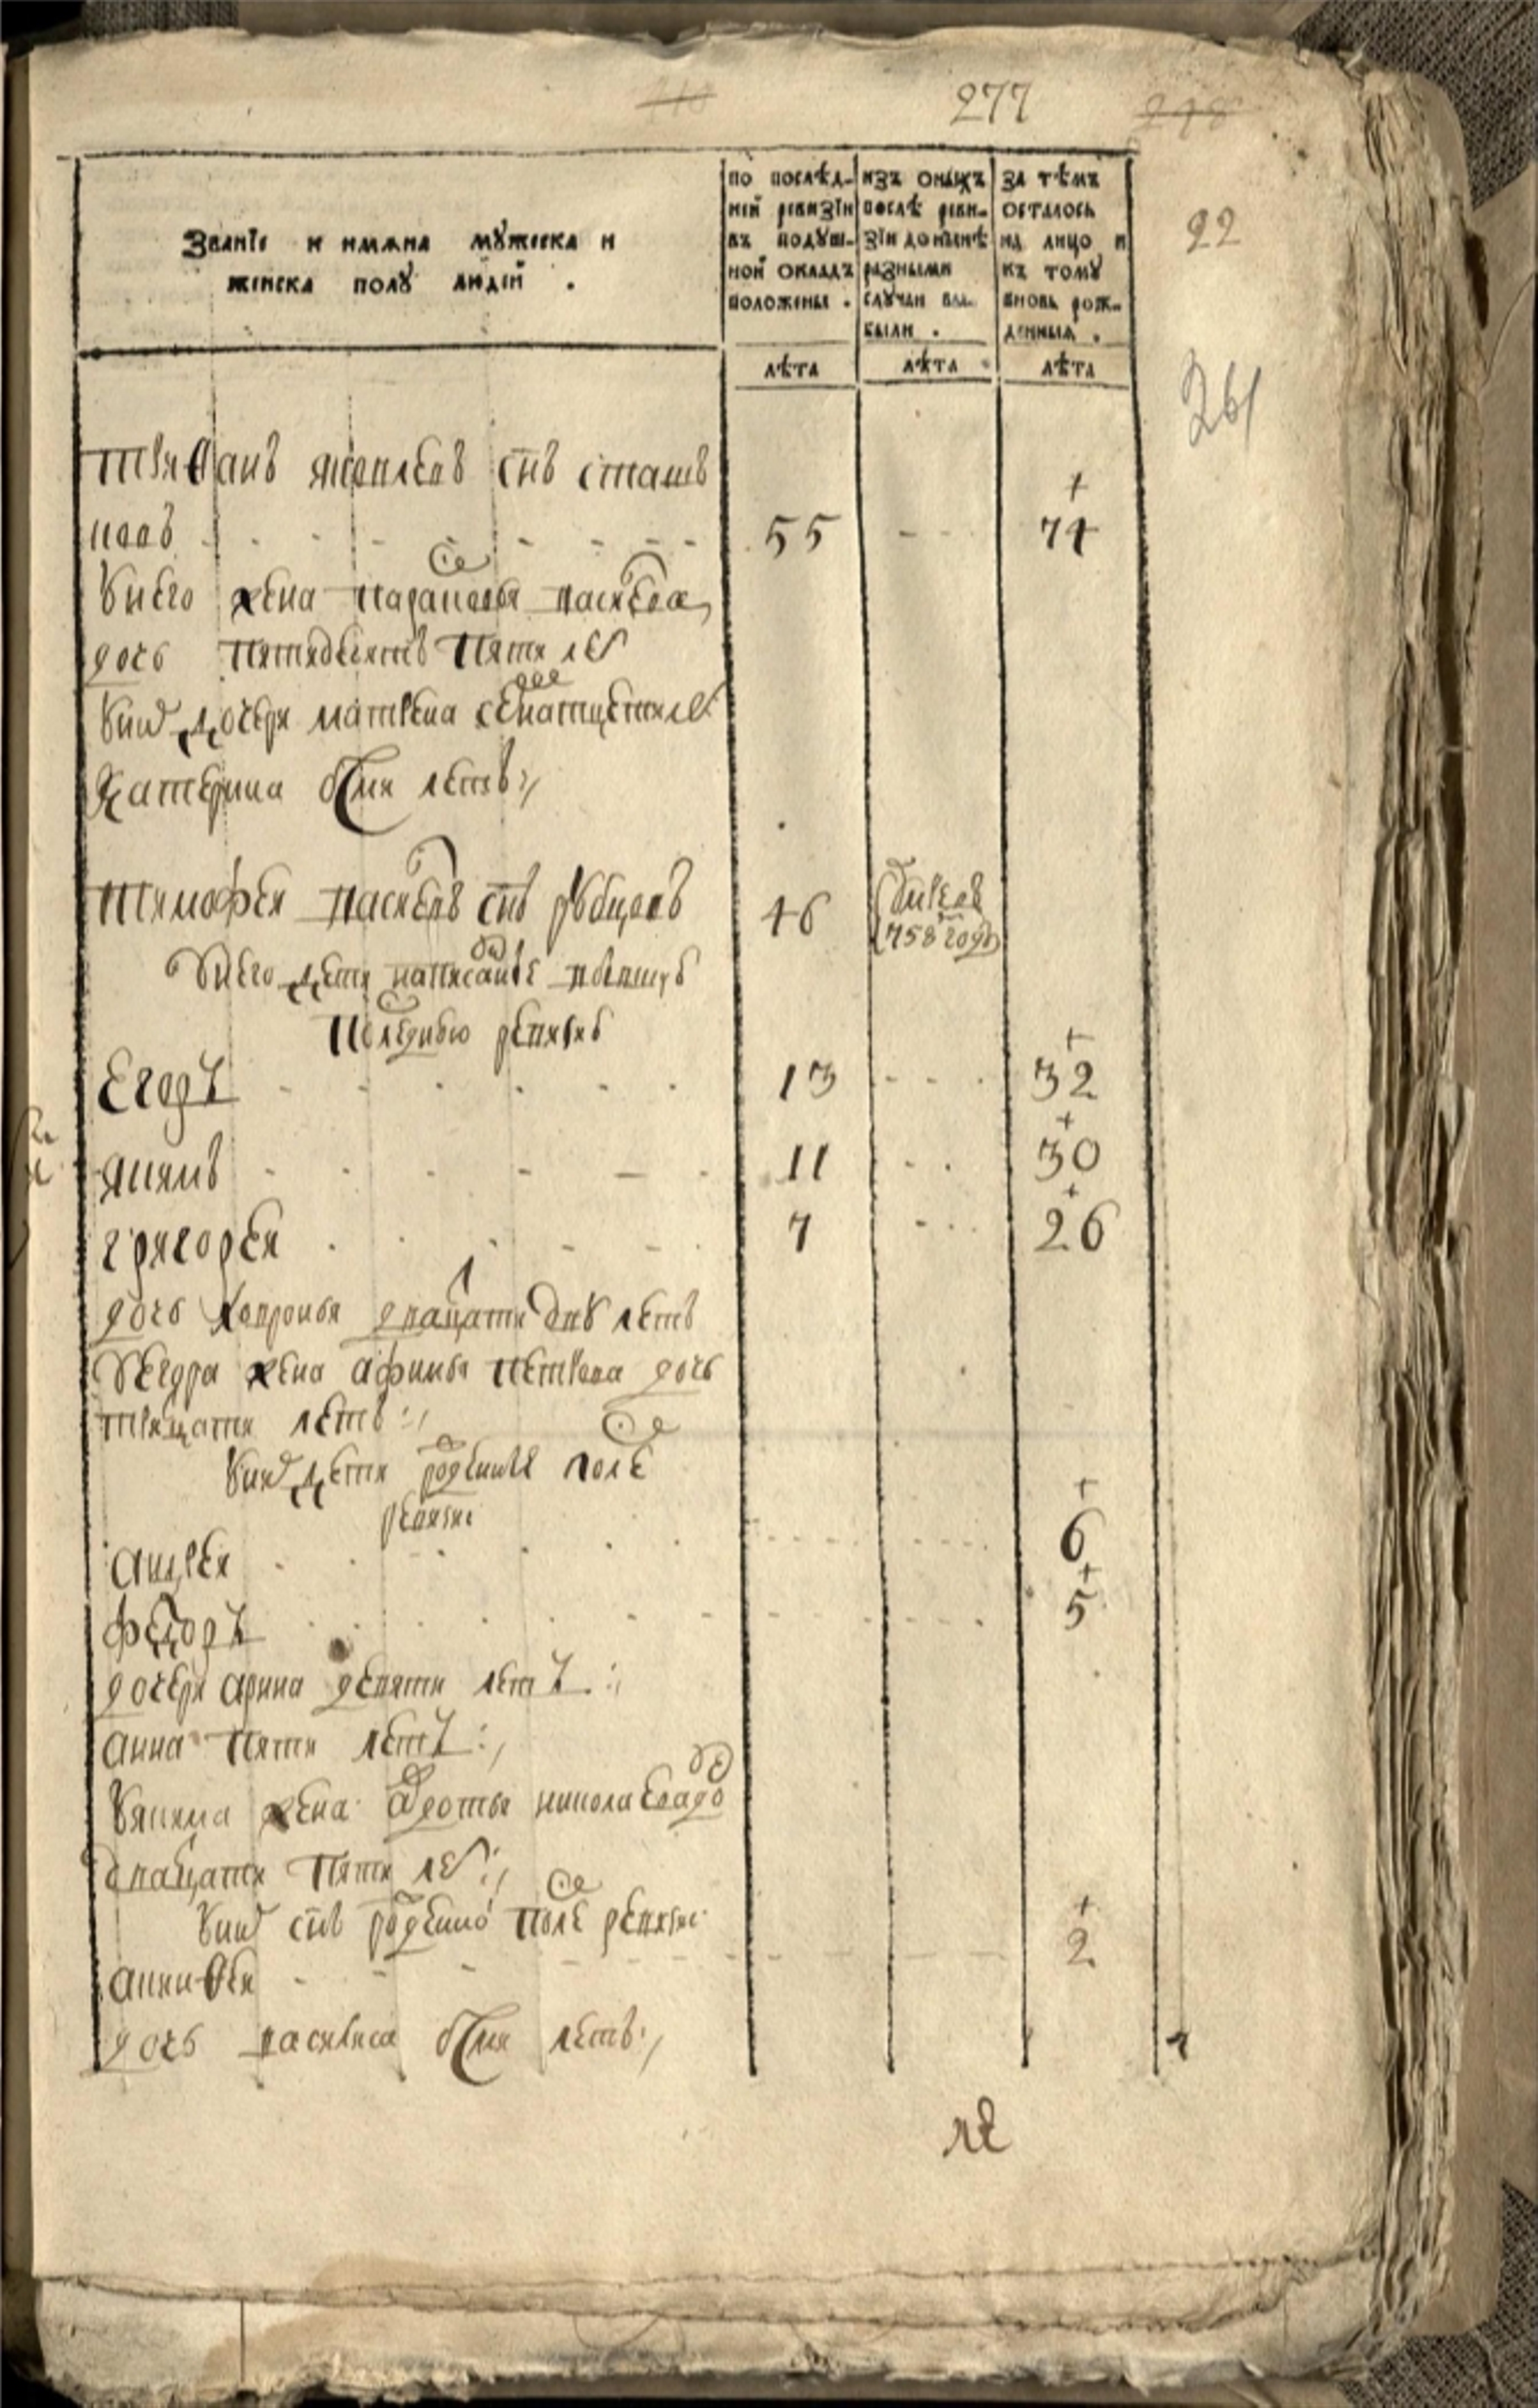 277
22
261
Званїе и имѧна мꙋжеска и
женска полꙋ людей .
по послѣд-
ней ревизїи
въ подꙋш-
ной окладъ
положены .
изъ оныхъ
послѣ реви-
зїи до нынѣ
разными
слꙋчаи вы-
были .
за тѣмъ
осталось
на лицо и
къ томꙋ
вновь рож-
денныѧ .
лѣта лѣта лѣта
яковлевъ снъ
новъ 55 74
унего жена парасковья васильева
дочь пятидесятъ пяти летъ
унихъ дочери матрена семнатцети летъ
катерина осми летъ
тимофеи васильевъ снъ рубцовъ 46 758 году
унего дети написанные впрежнюю
последнюю ревизию
егоръ 13 32
якимъ 11 30
григореи 7 26
дочь хавронья двацати дву летъ
уегора жена афимья петрова дочь
трицати летъ
унихъ дети рожденные после
ревизи
андреи 6
федоръ 5
дочери арина девяти летъ
анна пяти летъ
уякима жена авдотья николаева до
двацати пяти летъ
унихъ снъ рожденной после ревизи
аникеи 2
дочь василиса осми летъ